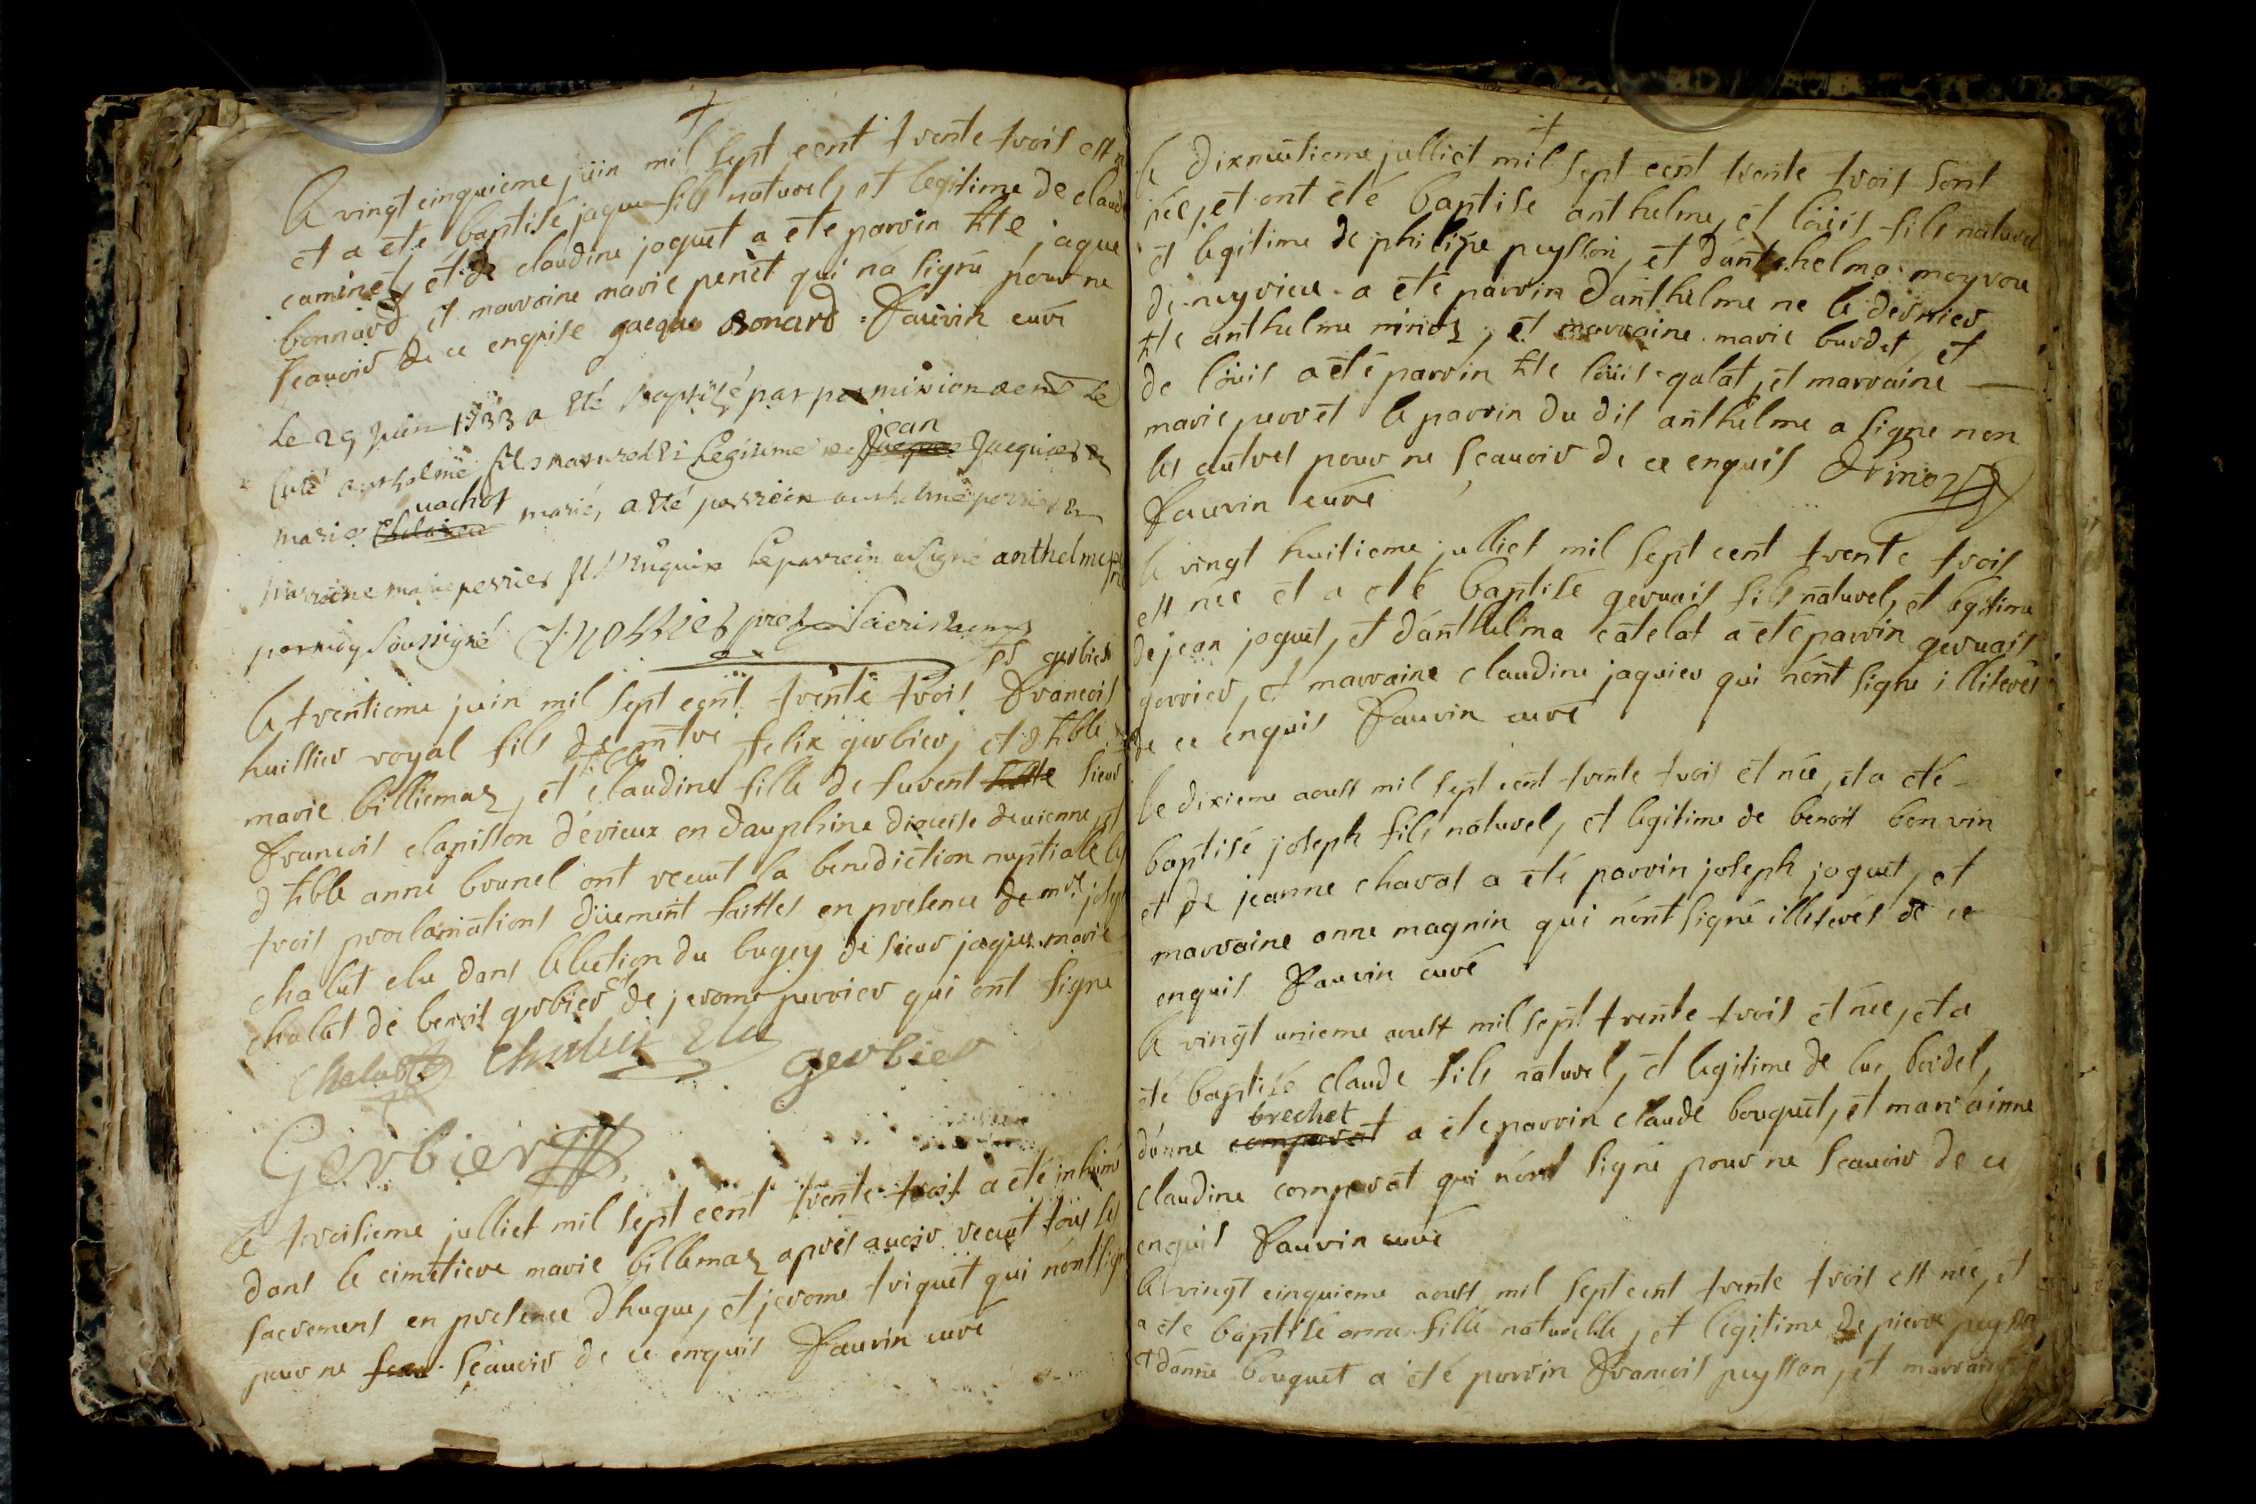 le vingt cinquieme juin mil sept cent trente trois est n
et a eté baptisé jaque fils naturel, et legitime de claude
caminet, et de claudine joquet a eté parrin hte jaque
bonnard, et marraine marie penet qui na signé pour ne
scauoir de ce enquise jacque Bonard Fauvin curé
Le 29 juin 1733 a eté baptizé par permission de mr le
Curé anthelme fils naturel et legitime de jean Jacquier et
marie vachot mariés, a eté parrein anthelme perrier et
marraine marie perrier illes enquise le parrein a signé anthelme
par moy soussigné pret Sacristain
fs gerbier
le trentieme juin mil sept cent trente trois Francois
huissier royal fils de mtre felix gerbier, et d hble
marie billiemaz, et hble claudine fille de fuvent sieur
Francois clapisson d'évieux en dauphine diocese de uienne, et
d hble anne brunel ont recut la benediction nuptiale les
trois proclamations düement faittes en presence de mre joseph
chalut elu dans lelection du bugey de sieur jaque marie
chalut de benoit gerbier et de jerome perrier qui ont signé
Chalut Chalut Elu gerbier
Gerbier
le troisieme julliet mil sept cent trente trois a eté inhumé
dans le cimetiere marie billemaz apres auoir recut tous les
sacremens en presence d hugue, et jerome triquet qui nónt signé
pour ne scauoir de ce enquis Fauvin curé
le dixneutieme julliet mil sept cent trente trois sont
née, et ont eté baptise anthelme, et loüis fils naturel
et legitime de philipe peysson, et dánthelma moyrou
de neyrieu a eté parrin dánthelme ne le dernier
hte anthelme rinoz, et marraine marie burdet, et
de loüis a eté parrin hte loüis galat, et marraine
marie perret le parrin du dit anthelme a signe non
les autres pour ne scauoir de ce enquis Arinoz
Fauvin curé
le vingt huitieme julliet mil sept cent trente trois
est née et a eté baptisé geruais fils naturel, et legitime
de jean joquet, et dánthelma catelat a eté parrin geruais
perrier, et marraine claudine jaquier qui nónt signé illiterés
de ce enquis Fauvin curé
le dixieme aoust mil sept cent trente trois et née, et a eté
baptisé joseph fils naturel, et legitime de benoit bonvin
et de jeanne chavat a eté parrin joseph joquet, et
marraine anne magnin qui nónt signé illiterés de ce
enquis Fauvin curé
le vingt unieme aoust mil sept trente trois et née, et a
eté baptisé claude fils naturel, et legitime de luc bordel,
dónne brechet a eté parrin claude bouquet, et marrainne
claudine comparat qui nónt signé pour ne scauoir de ce
enquis Fauvin curé
le vingt cinquieme aoust mil sept cent trente trois est née, et
a eté baptisé anne fille naturelle, et legitime de pierre peysson,
et dánne bouquet a eté parrin Francois peysson, et marraine